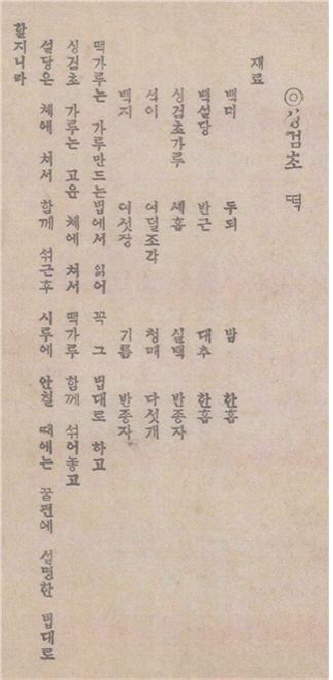 ◎싱검초 떡
재료
백미 두되 밤 한홉
백설당 반근 대추 한홉
싱검초가루 세홉 실백 반종자
석이 여덜조각 청매 다섯개
백지 여섯장 기름 반종자
떡가루는 가루만드는법에서 읽어 꼭 그 법대로 하고
싱검초 가루는 고운 체에 쳐서 떡가루 함께 섞어놓고
설당은 체에 쳐서 함께 섞근후 시루에 안칠 때에는 꿀편에 설명한 법대로
할지니라